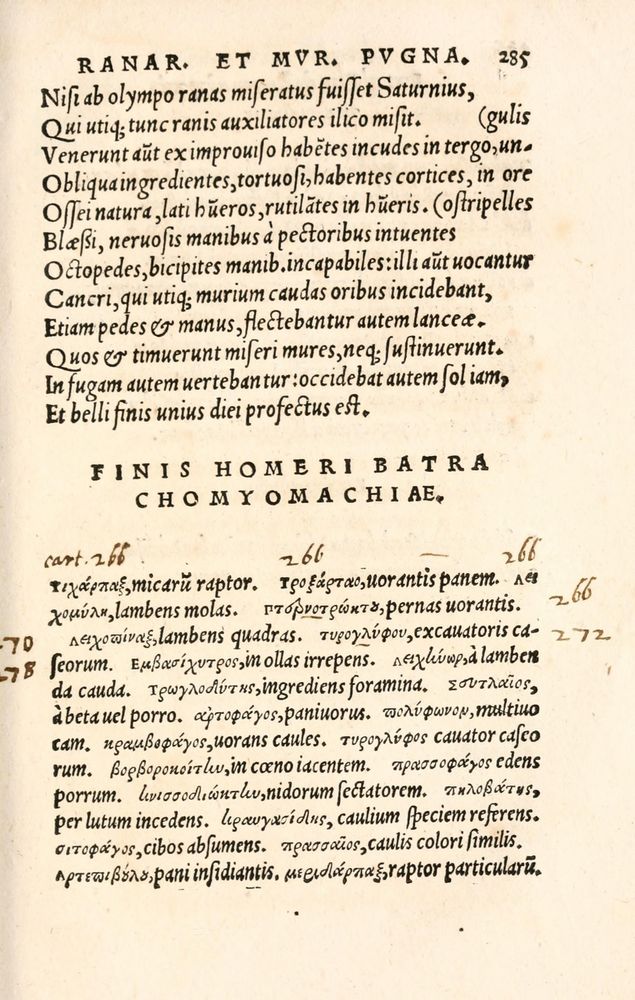 RANAR. ET MVR. PVGNA. 285
Nisi ab olympo ranas miseratus fuisset Saturnius,
Qui utiq; tunc ranis auxiliatores ilico misit. (gulis
Venerunt aũt ex improuiso habẽtes incudes in tergo, un-
Obliqua ingredientes, tortuosi, habentes cortices, in ore
Ossei natura, lati hũeros, rutilãtes in hũeris. (ostripelles
Blæssi, neruosis manibus à pectoribus intuentes
Octopedes, bicipites manib. incapabiles: illi aũt uocantur
Cancri, qui utiq; murium caudas oribus incidebant,
Etiam pedes & manus, flectebantur autem lanceæ.
Quos & timuerunt miseri mures, neq; sustinuerunt.
In fugam autem uertebantur: occidebat autem sol iam,
Et belli finis unius diei profectus est.
FINIS HOMERI BATRA
CHOMYOMACHIAE.
cart. 266 266 — 266
τιχάρπαξ, micarũ raptor. τροξάρταο, uorantis panem. λει
χομύλη, lambens molas. πτερνοτρώκτου, pernas uorantis. 266
270 λειχοπίναξ, lambens quadras. τυρογλύφου, excauatoris ca- 272
278 seorum. Εμβασίχυτρος, in ollas irrepens. λειχήνωρ, à lamben
da cauda. Τρωγλοδύτης, ingrediens foramina. Σουτλαῖος,
à beta uel porro. ἀρτοφάγος, paniuorus. πολύφωνον, multiuo
cam. κραμβοφάγος, uorans caules. τυρογλύφος cauator caseo
rum. βορβοροκοίτην, in cœno iacentem. πρασσοφάγος edens
porrum. κνισσοδιώκτην, nidorum sectatorem. πηλοβάτης,
per lutum incedens. κραυγασίδης, caulium speciem referens.
σιτοφάγος, cibos absumens. πρασσαῖος, caulis colori similis.
Αρτεπιβούλου, pani insidiantis. μεριδάρπαξ, raptor particularũ.